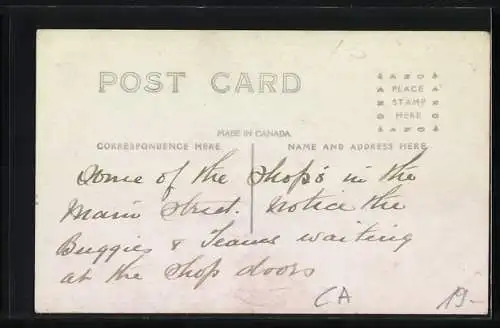 POST CARD
AZO
PLACE
STAMP
HERE
AZO
MADE IN CANADA
CORRESPONDENCE HERE
NAME AND ADDRESS HERE
Some of the Shop's in the
Main Street. Notice the
Buggies & Teams waiting
at the Shop doors
CA
19-